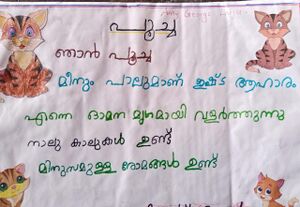 പൂച്ച
ഞാൻ പൂച്ച
മീനും പാലുമാണ് ഇഷ്ട ആഹാരം
എന്നെ ഓമന മൃഗമായി വളർത്തുന്നു
നാലു കാലുകൾ ഉണ്ട്
മിനുസമുള്ള രോമങ്ങൾ ഉണ്ട്